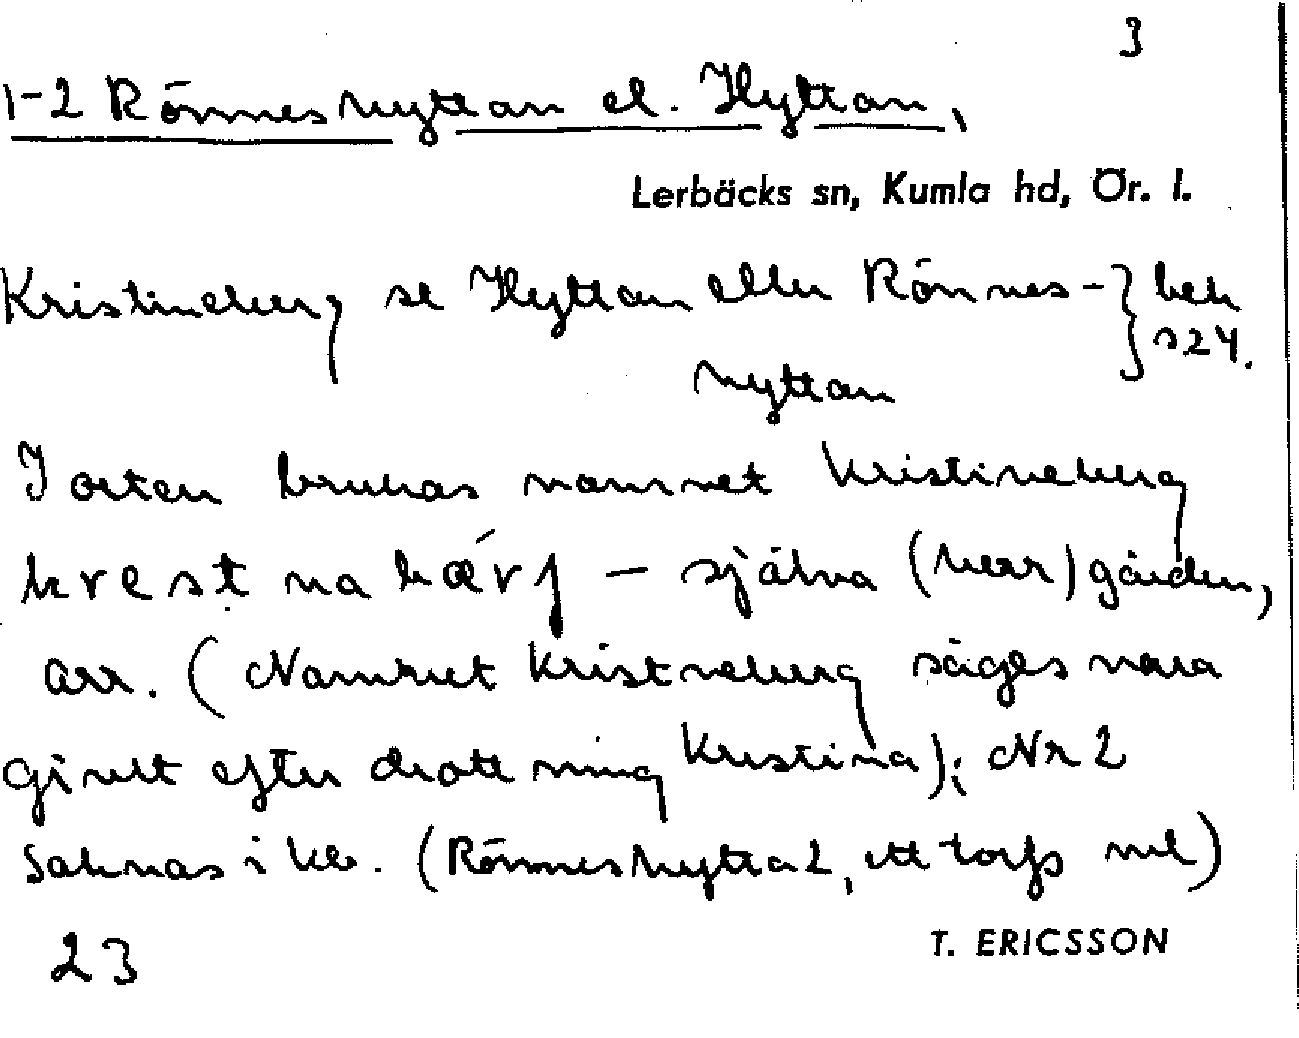 3
1-2 Rönneshyttan el. Hyttan,
Lerbäcks sn, Kumla hd, Ör. l.
Kristineberg se Hyttan eller Rönnes- } bek
s 24.
hyttan
I orten brukas namnet Kristineberg
krestnabærj – själva (herr)gården,
arr. (Namnet Kristneberg säges vara
givet efter drottning Kristina); Nr 2
Saknas i kb. (Rönneshyttan 2, ett torps